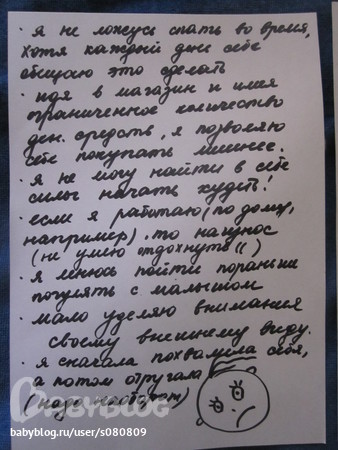 · я не ложусь спать во время,
хотя каждый день себе
обещаю это сделать
· идя в магазин и имея
ограниченное количество
ден. средств, я позволяю
себе покупать лишнее.
· я не могу найти в себе
силы начать худеть!
· если я работаю (по дому,
например), то на износ
(не умею отдохнуть ((
· я ленюсь пойти пораньше
погулять с малышом
· мало уделяю внимания
своему внешнему виду.
· я сначала похвалила себя,
а потом отругала
(надо наоборот)
Babyblog
babyblog.ru/user/s080809